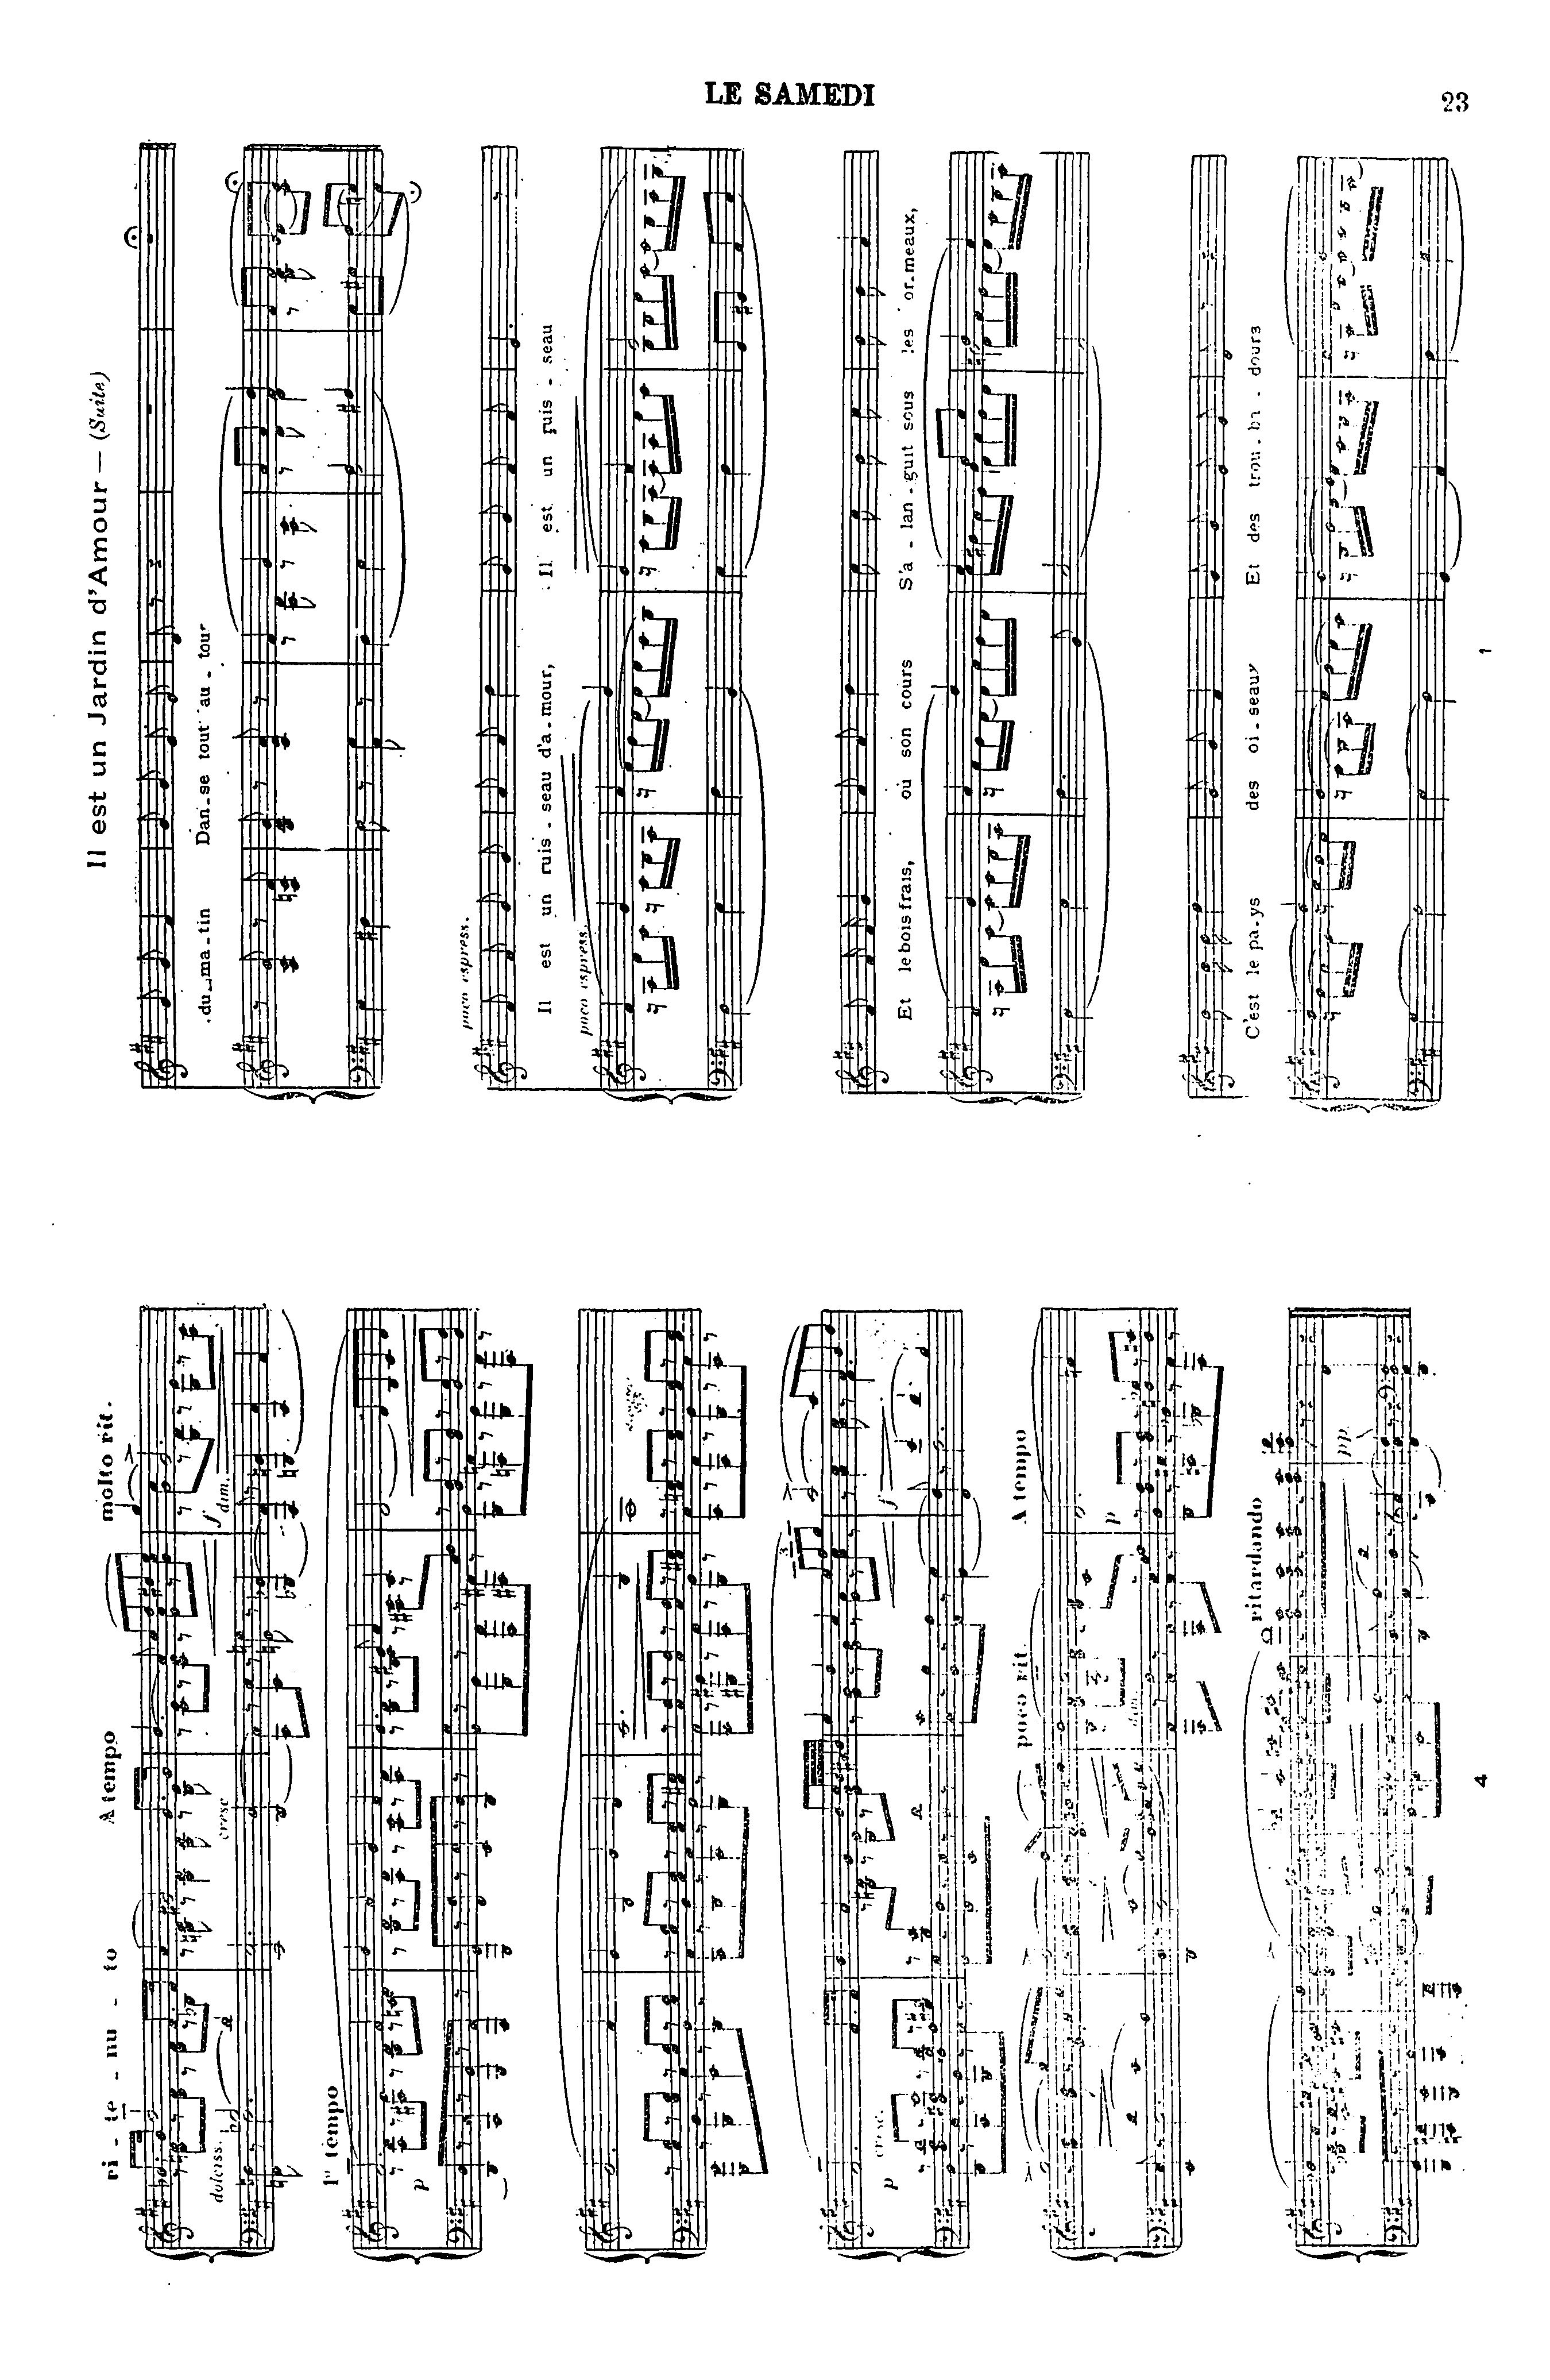 LE SAMEDI
23
Il est un Jardin d'Amour — (Suite)
du_ma_tin Dan_se tout au_tour
poco espress.
Il est un ruis_seau d'a_mour, Il est un ruis_seau
poco espress.
Et le bois frais, où son cours S'a_lan_guit sous les or_meaux,
C'est le pa_ys des oi_seaux Et des trou_ba_dours
1
ri_te_nu_to A tempo molto rit.
dolciss. cresc f dim.
1er tempo
p
3
p cresc. f
poco rit. A tempo
dim. p
ritardando
pp
4